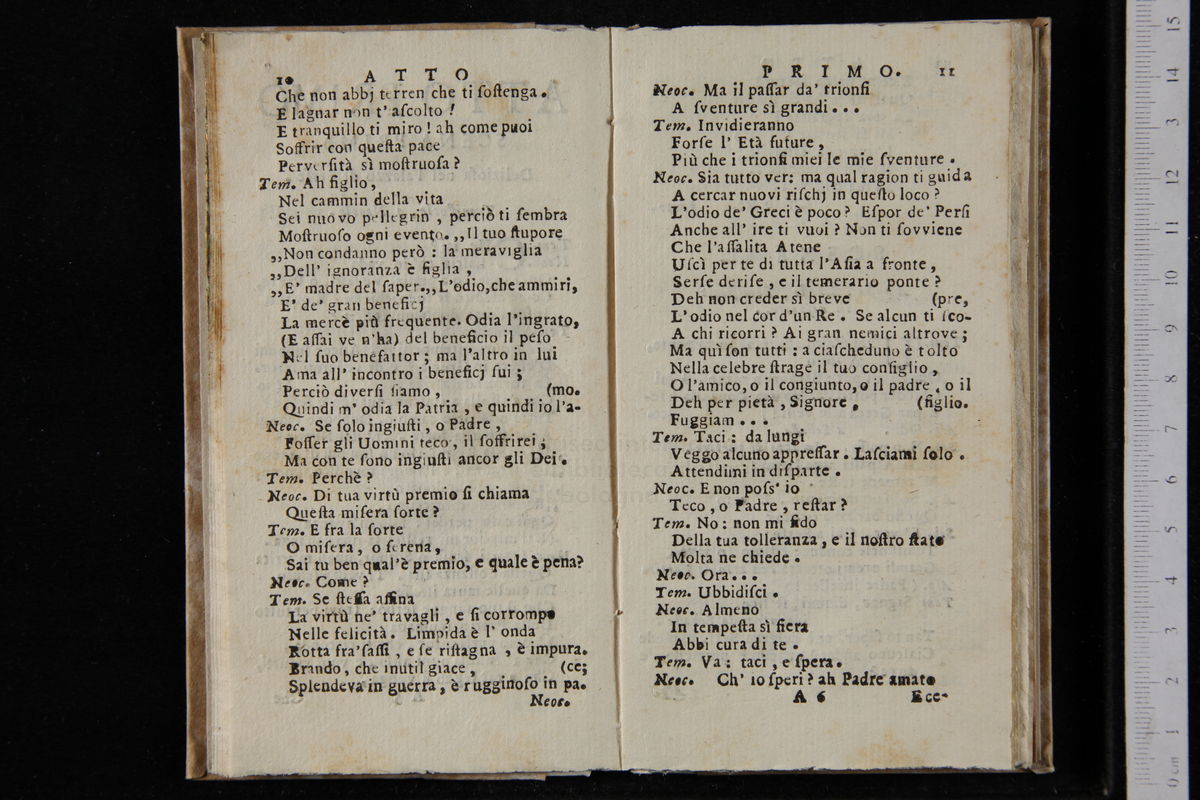 10 ATTO
Che non abbj terren che ti ſoſtenga.
E lagnar non t'aſcolto!
E tranquillo ti miro! ah come puoi
Soffrir con queſta pace
Perverſità sì moſtruoſa?
Tem. Ah figlio,
Nel cammin della vita
Sei nuovo pellegrin, perciò ti ſembra
Moſtruoſo ogni evento. „Il tuo ſtupore
„Non condanno però: la meraviglia
„Dell' ignoranza è figlia,
„E' madre del ſaper.„L'odio, che ammiri,
E' de' gran beneficj
La mercè più frequente. Odia l'ingrato,
(E aſſai ve n'ha) del beneficio il peſo
Nel ſuo benefattor; ma l'altro in lui
Ama all' incontro i beneficj ſui;
Perciò diverſi ſiamo, (mo.
Quindi m' odia la Patria, e quindi io l'a-
Neoc. Se ſolo ingiuſti, o Padre,
Foſſer gli Uomini teco, il ſoffrirei;
Ma con te ſono ingiuſti ancor gli Dei.
Tem. Perchè?
Neoc. Di tua virtù premio ſi chiama
Queſta miſera ſorte?
Tem. E fra la ſorte
O miſera, o ſerena,
Sai tu ben qual'è premio, e quale è pena?
Neoc. Come?
Tem. Se ſteſſa affina
La virtù ne' travagli, e ſi corrompe
Nelle felicità. Limpida è l' onda
Rotta fra' ſaſſi, e ſe riſtagna, è impura.
Brando, che inutil giace, (ce;
Splendeva in guerra, è rugginoſo in pa.
Neoc.
PRIMO. 11
Neoc. Ma il paſſar da' trionfi
A ſventure sì grandi...
Tem. Invidieranno
Forſe l' Età future,
Più che i trionfi miei le mie ſventure.
Neoc. Sia tutto ver: ma qual ragion ti guida
A cercar nuovi riſchj in queſto loco?
L'odio de' Greci è poco? Eſpor de' Perſi
Anche all' ire ti vuoi? Non ti ſovviene
Che l'aſſalita Atene
Uſcì per te di tutta l'Aſia a fronte,
Serſe deriſe, e il temerario ponte?
Deh non creder sì breve (pre,
L'odio nel cor d'un Re. Se alcun ti ſco-
A chi ricorri? Ai gran nemici altrove;
Ma quì ſon tutti: a ciaſcheduno è tolto
Nella celebre ſtrage il tuo conſiglio,
O l'amico, o il congiunto, o il padre, o il
Deh per pietà, Signore, (figlio.
Fuggiam...
Tem. Taci: da lungi
Veggo alcuno appreſſar. Laſciami ſolo.
Attendimi in diſparte.
Neoc. E non poſs' io
Teco, o Padre, reſtar?
Tem. No: non mi fido
Della tua tolleranza, e il noſtro ſtato
Molta ne chiede.
Neoc. Ora...
Tem. Ubbidiſci.
Neoc. Almeno
In tempeſta sì fiera
Abbi cura di te.
Tem. Va: taci, e ſpera.
Neoc. Ch' io ſperi? ah Padre amato
A 6 Ecc-